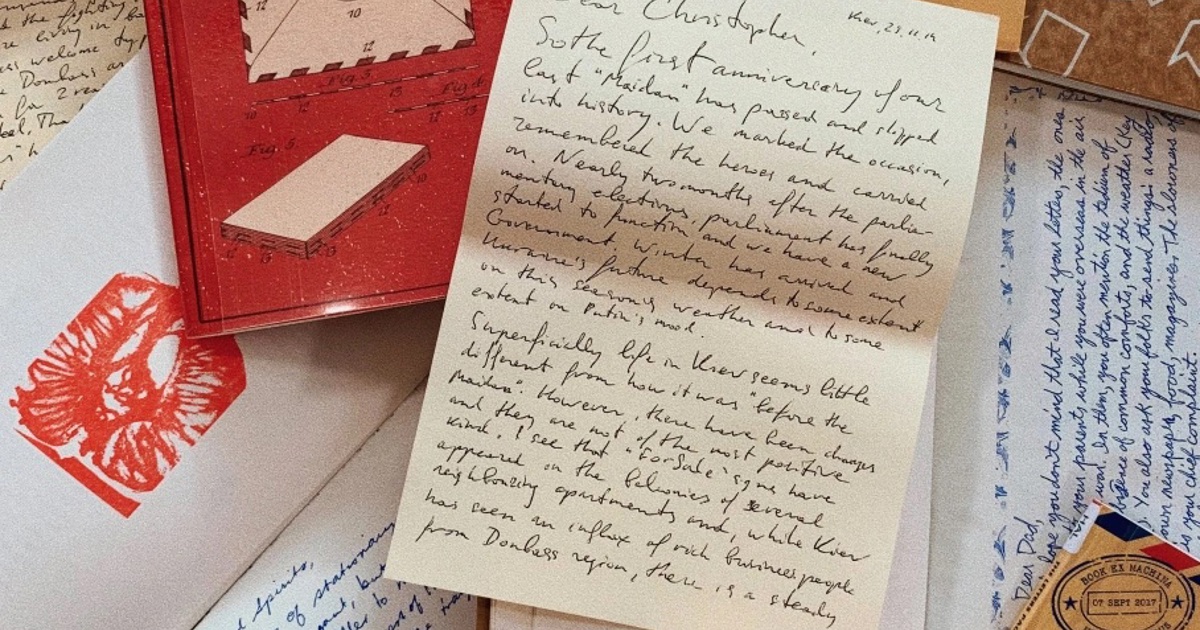 Dear Christopher,
Kiev, 23.11.14
So the first anniversary of our
last "Maidan" has passed and slipped
into history. We marked the occasion,
remembered the heroes and carried
on. Nearly two months after the parlia-
mentary elections, parliament has finally
started to function and we have a new
Government. Winter has arrived and
Ukraine's future depends to some extent
on this season's weather and to some
extent on Putin's mood.
Superficially life in Kiev seems little
different from how it was "before the
Maidan". However, there have been changes
and they are not of the most positive
kind. I see that "For Sale" signs have
appeared on the balconies of several
neighbouring apartments and, while Kiev
has seen an influx of rich businesspeople
from Donbass region, there is a steady
the fighting
living in
welcome
Donbass as
for 2
12
10
12
Fig. 3.
13
10
12
12
Fig. 5.
10
12
13
spirits,
of stationary
but
Dear Dad,
hope you don't mind that I read your letters, the ones
your parents while you were overseas in the air
war. In them, you often mention the tedium of
absence of common comforts, and the weather. Key
You also ask your folks to send things: a radio,
newspaper, food, magazines. The slowness of
is your chief complaint.
BOOK EX MACHINA
07 SEPT 2017